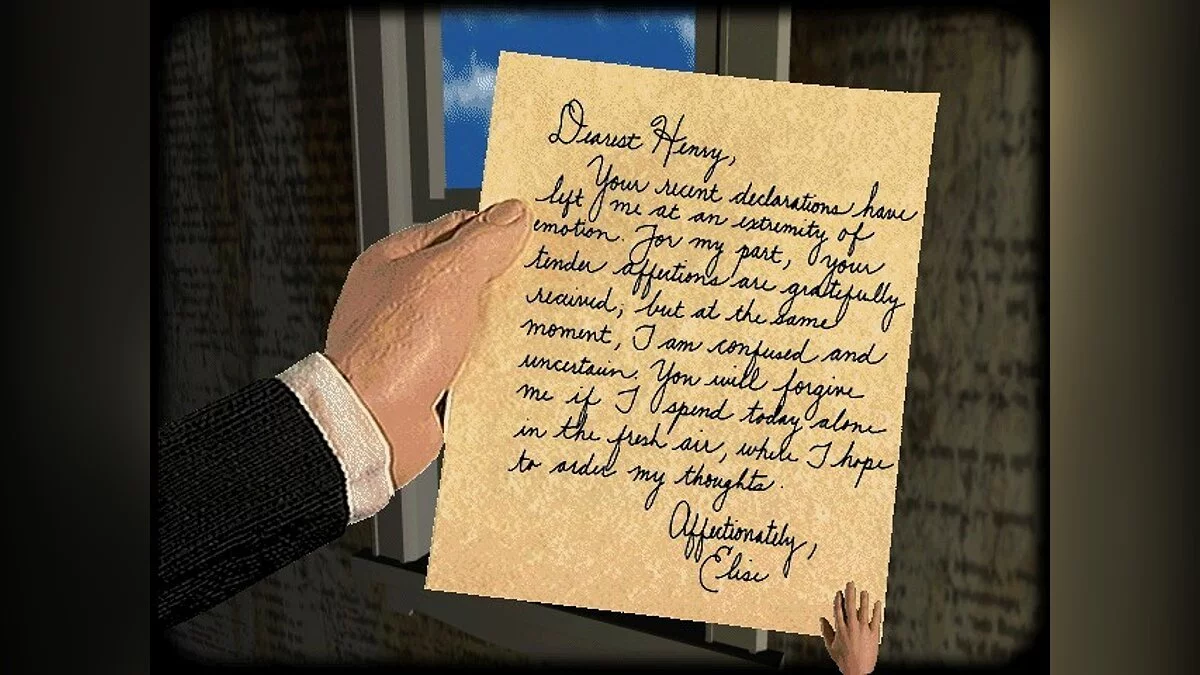 Dearest Henry,
Your recent declarations have
left me at an extremity of
emotion. For my part, your
tender affections are gratefully
received; but at the same
moment, I am confused and
uncertain. You will forgive
me if I spend today alone
in the fresh air, where I hope
to order my thoughts.
Affectionately,
Elise